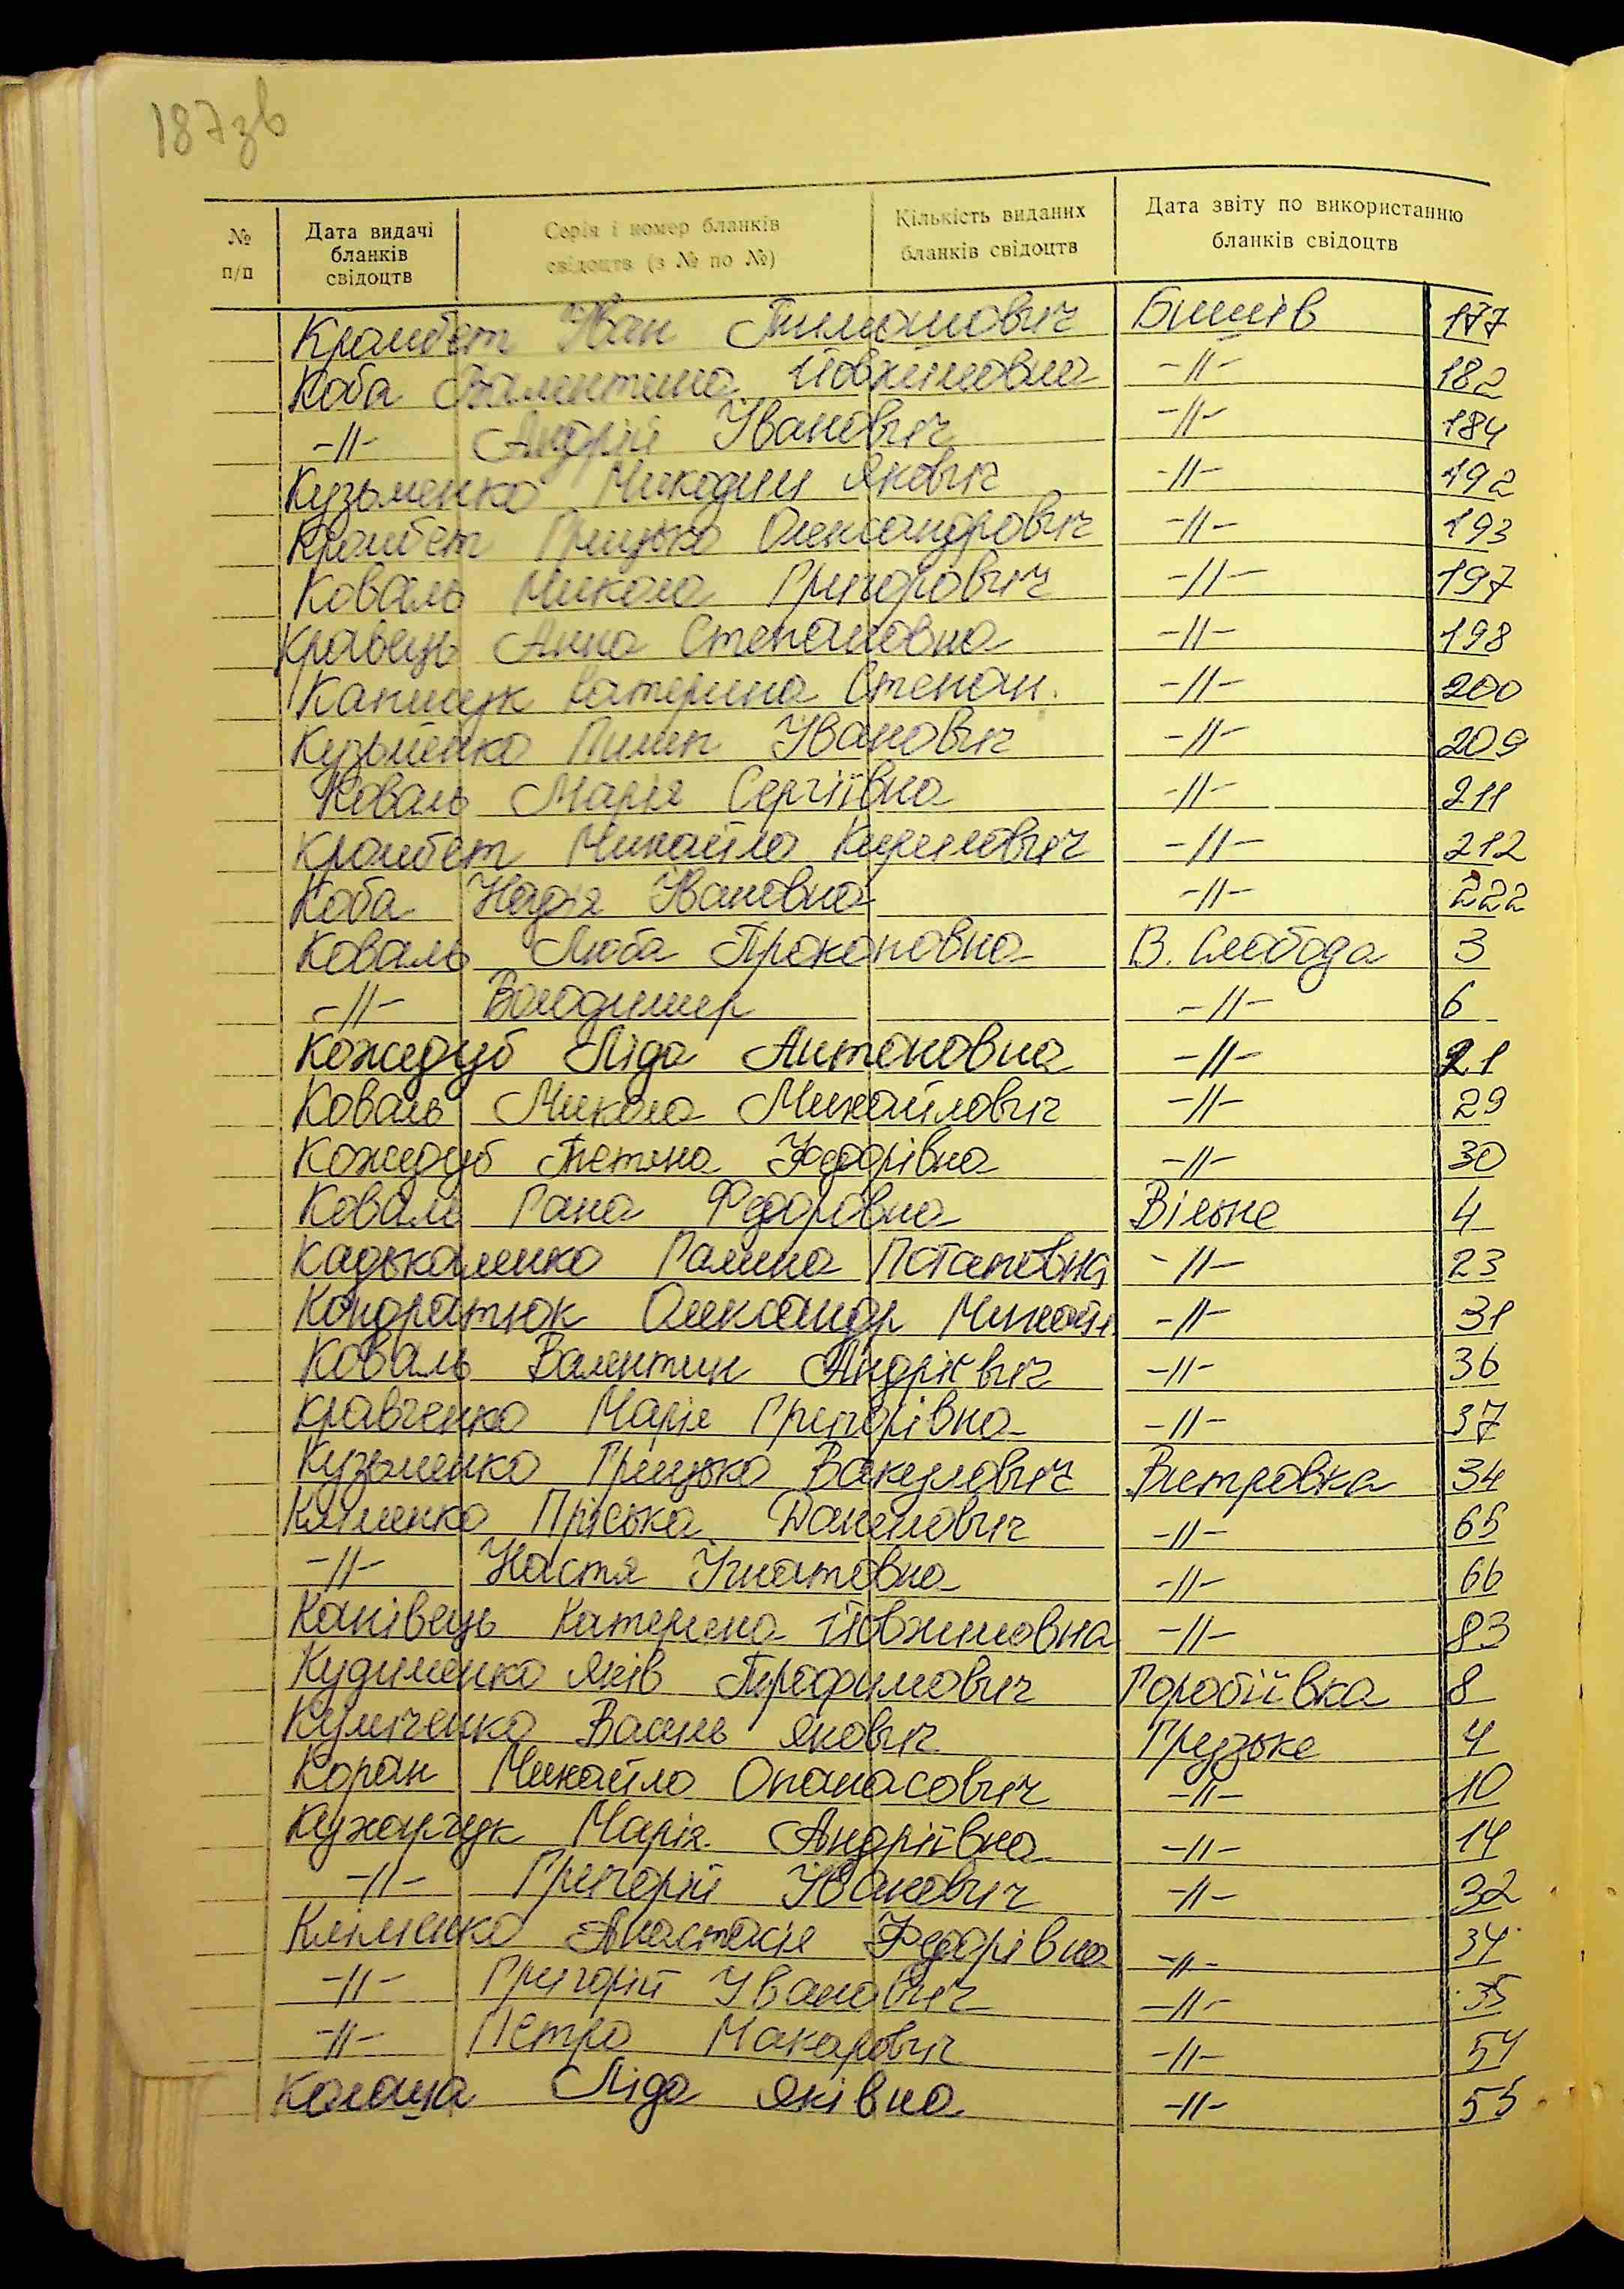 187зв
№ п/п | Дата видачі бланків свідоцтв | Серія і номер бланків свідоцтв (з № по №) | Кількість виданих бланків свідоцтв | Дата звіту по використанню бланків свідоцтв
Крамбет Іван Тимошович Бишів 177
Коба Валентина Йовхимовна -//- 182
-//- Андрій Іванович -//- 184
Кузьменко Микодим Якович -//- 192
Крамбет Грицько Олександрович -//- 193
Коваль Микола Григорович -//- 197
Кравець Анна Степановна -//- 198
Капшук Катерина Степан. -//- 200
Кузьменко Пилип Іванович -//- 209
Коваль Марія Сергіївна -//- 211
Крамбет Михайло Кирилович -//- 212
Коба Надія Івановна -//- 222
Коваль Люба Прокоповна В. Слобода 3
-//- Володимир -//- 6
Кожедуб Ліда Антоновна -//- 21
Коваль Микола Михайлович -//- 29
Кожедуб Тетяна Федорівна -//- 30
Коваль Гана Федоровна Вільне 4
Кадькаленко Галина Потаповна -//- 23
Кондратюк Олександр Михайл -//- 31
Коваль Валентин Андрієвич -//- 36
Кравченко Марія Григорівна -//- 37
Кузьменко Грицько Вакулович Витровка 34
Кліменко Пріська Данилович -//- 65
-//- Настя Ігнатовна -//- 66
Канівець Катерина Йовхимовна -//- 83
Кудименко Яків Трофимович Горобіївка 8
Куліченко Василь Якович Грузьке 4
Коран Михайло Опанасович -//- 10
Кухарчук Марія Андріївна -//- 14
-//- Григорій Іванович -//- 32
Кліменко Анастасія Федорівна -//- 34
-//- Григорій Іванович -//- 35
-//- Петро Макарович -//- 54
Ліда Яківна -//- 55